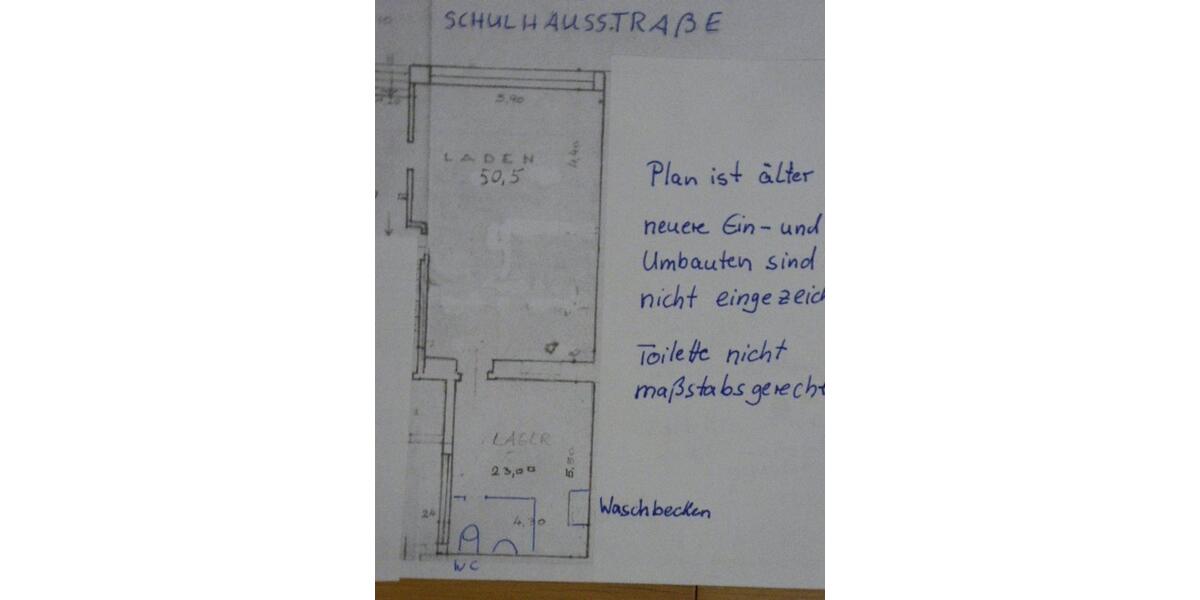 SCHULHAUSSTRAßE
5,90
LADEN
50,5
4,40
Plan ist älter
neuere Ein- und
Umbauten sind
nicht eingezeich
Toilette nicht
maßstabsgerecht
LAGER
23,00
Waschbecken
24
4,30
WC